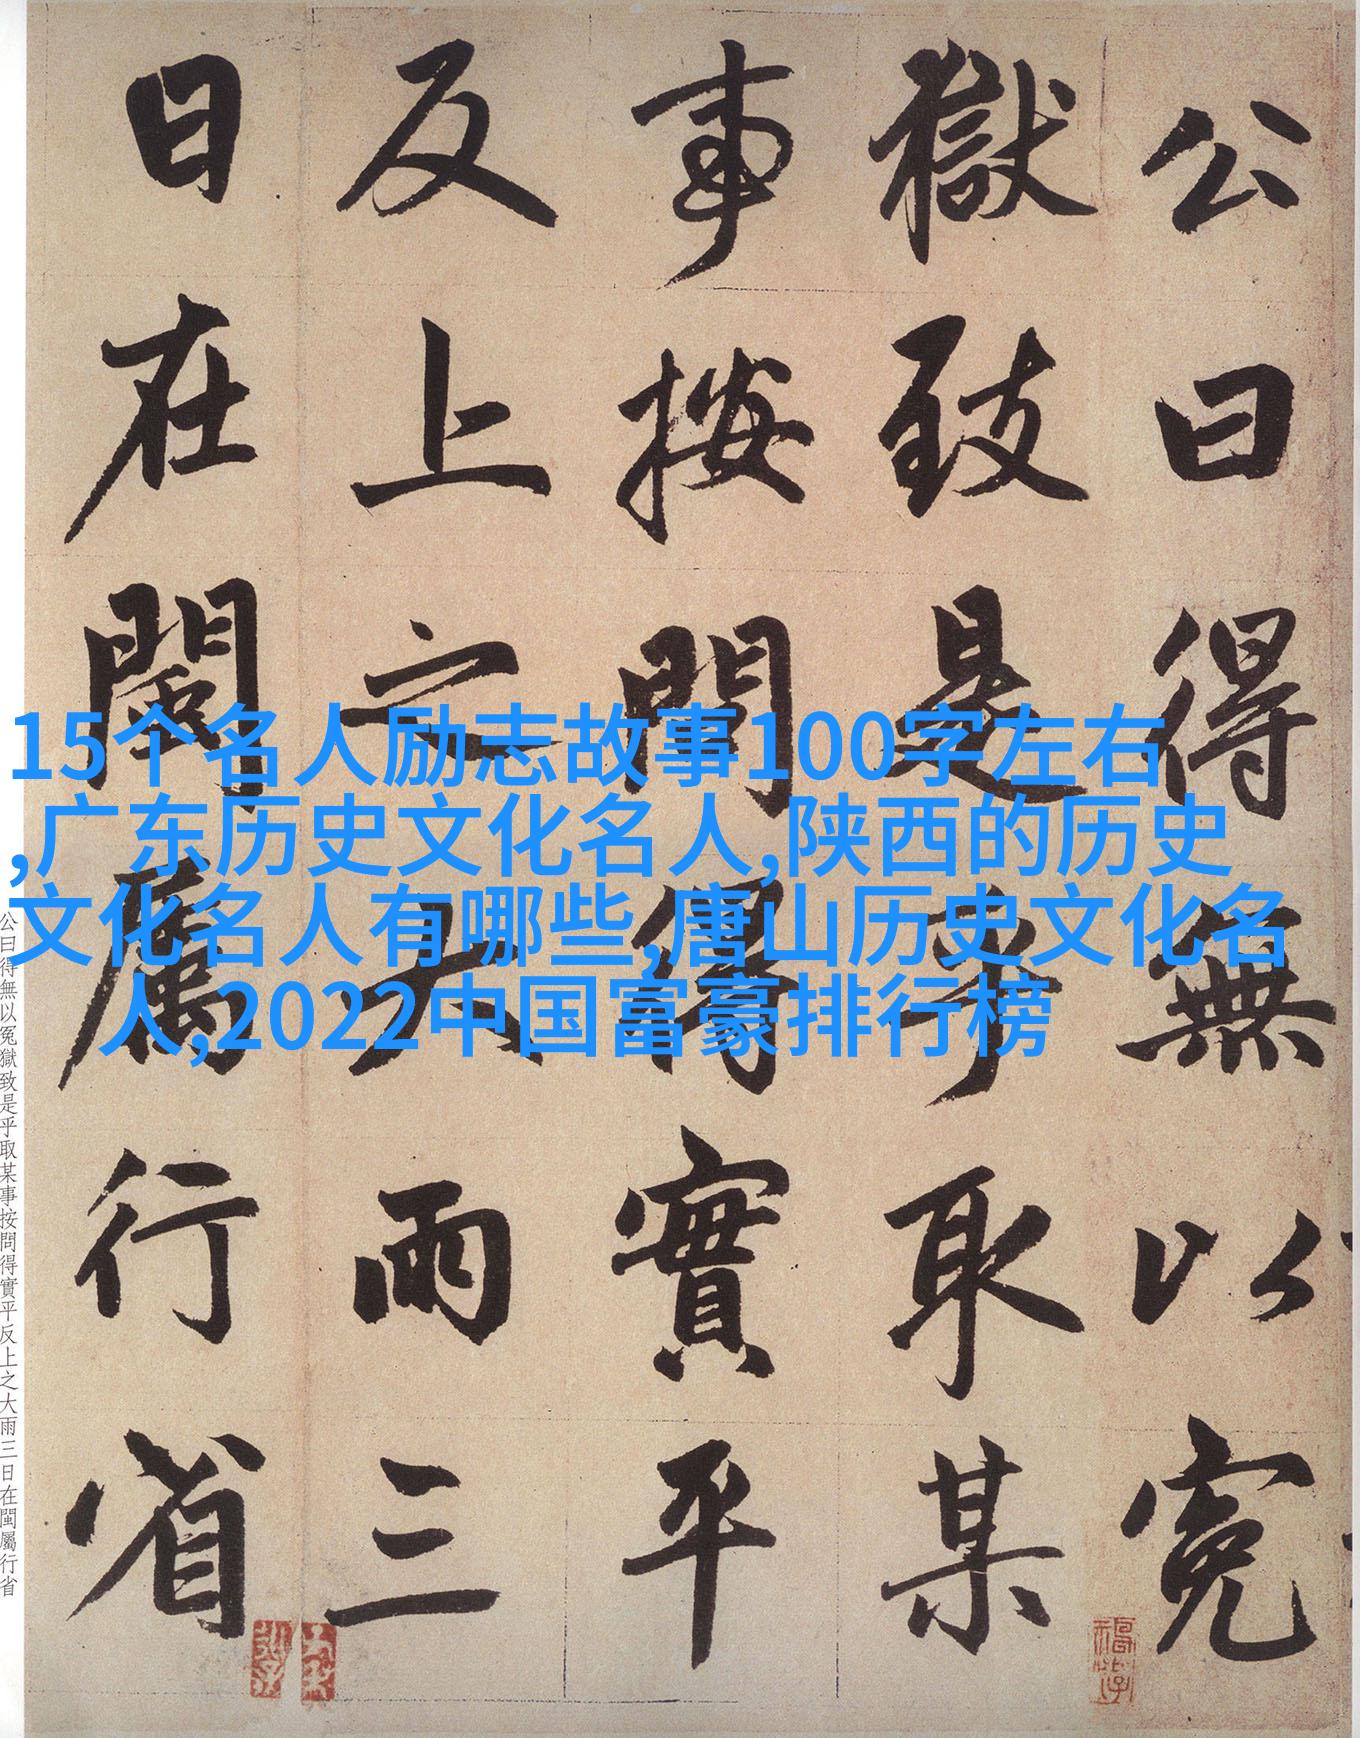 公曰得無以冤
獄致是乎取某
事按問得實平
反上之大雨三
日在閩屬行省
公曰得無以冤獄致是乎取某事按問得實平反上之大雨三日在閩屬行省
15个名人励志故事100字左右
,广东历史文化名人,陕西的历史
文化名人有哪些,唐山历史文化名
人,2022中国富豪排行榜